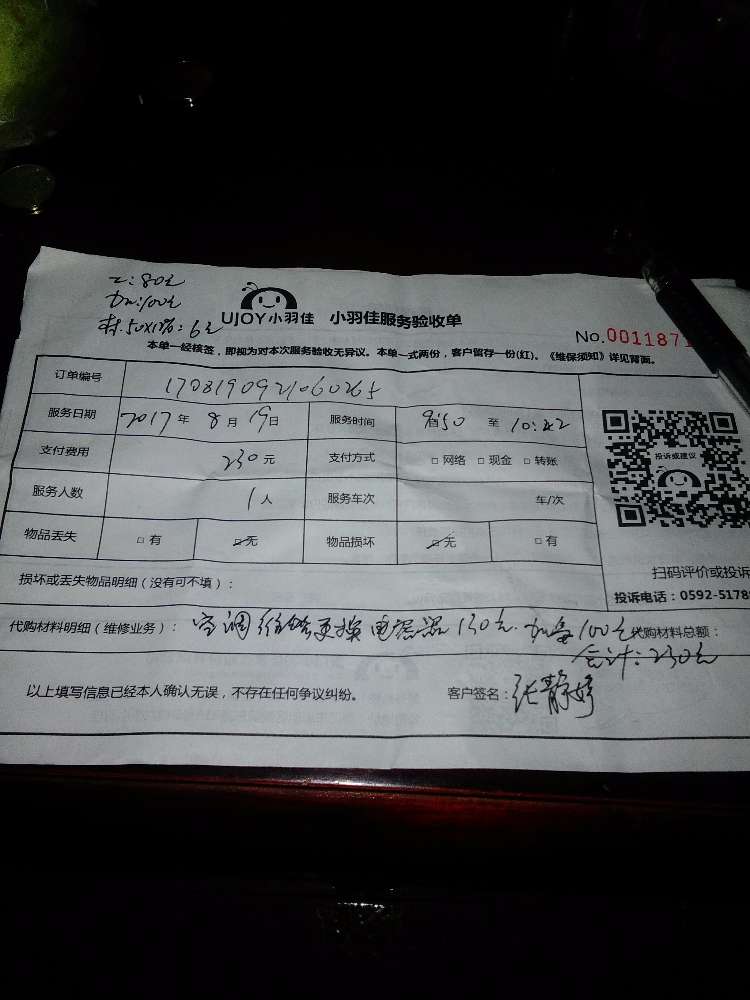 工:80元
加:100元
材.50X12%:6元
UJOY小羽佳 小羽佳服务验收单
No.0011871
本单一经核签，即视为对本次服务验收无异议。本单一式两份，客户留存一份(红)。《维保须知》详见背面。
订单编号 1708190921060265
服务日期 2017年8月19日 服务时间 9:50 至 10:42
支付费用 230元 支付方式 □网络 □现金 □转账
投诉或建议
服务人数 1人 服务车次 车/次
物品丢失 □有 □无 物品损坏 □无 □有
扫码评价或投诉
损坏或丢失物品明细（没有可不填）：
投诉电话：0592-5178
代购材料明细（维修业务）： 空调维修更换电容器130元.加氟100元 代购材料总额：
合计:230元
以上填写信息已经本人确认无误，不存在任何争议纠纷。 客户签名：张静婷